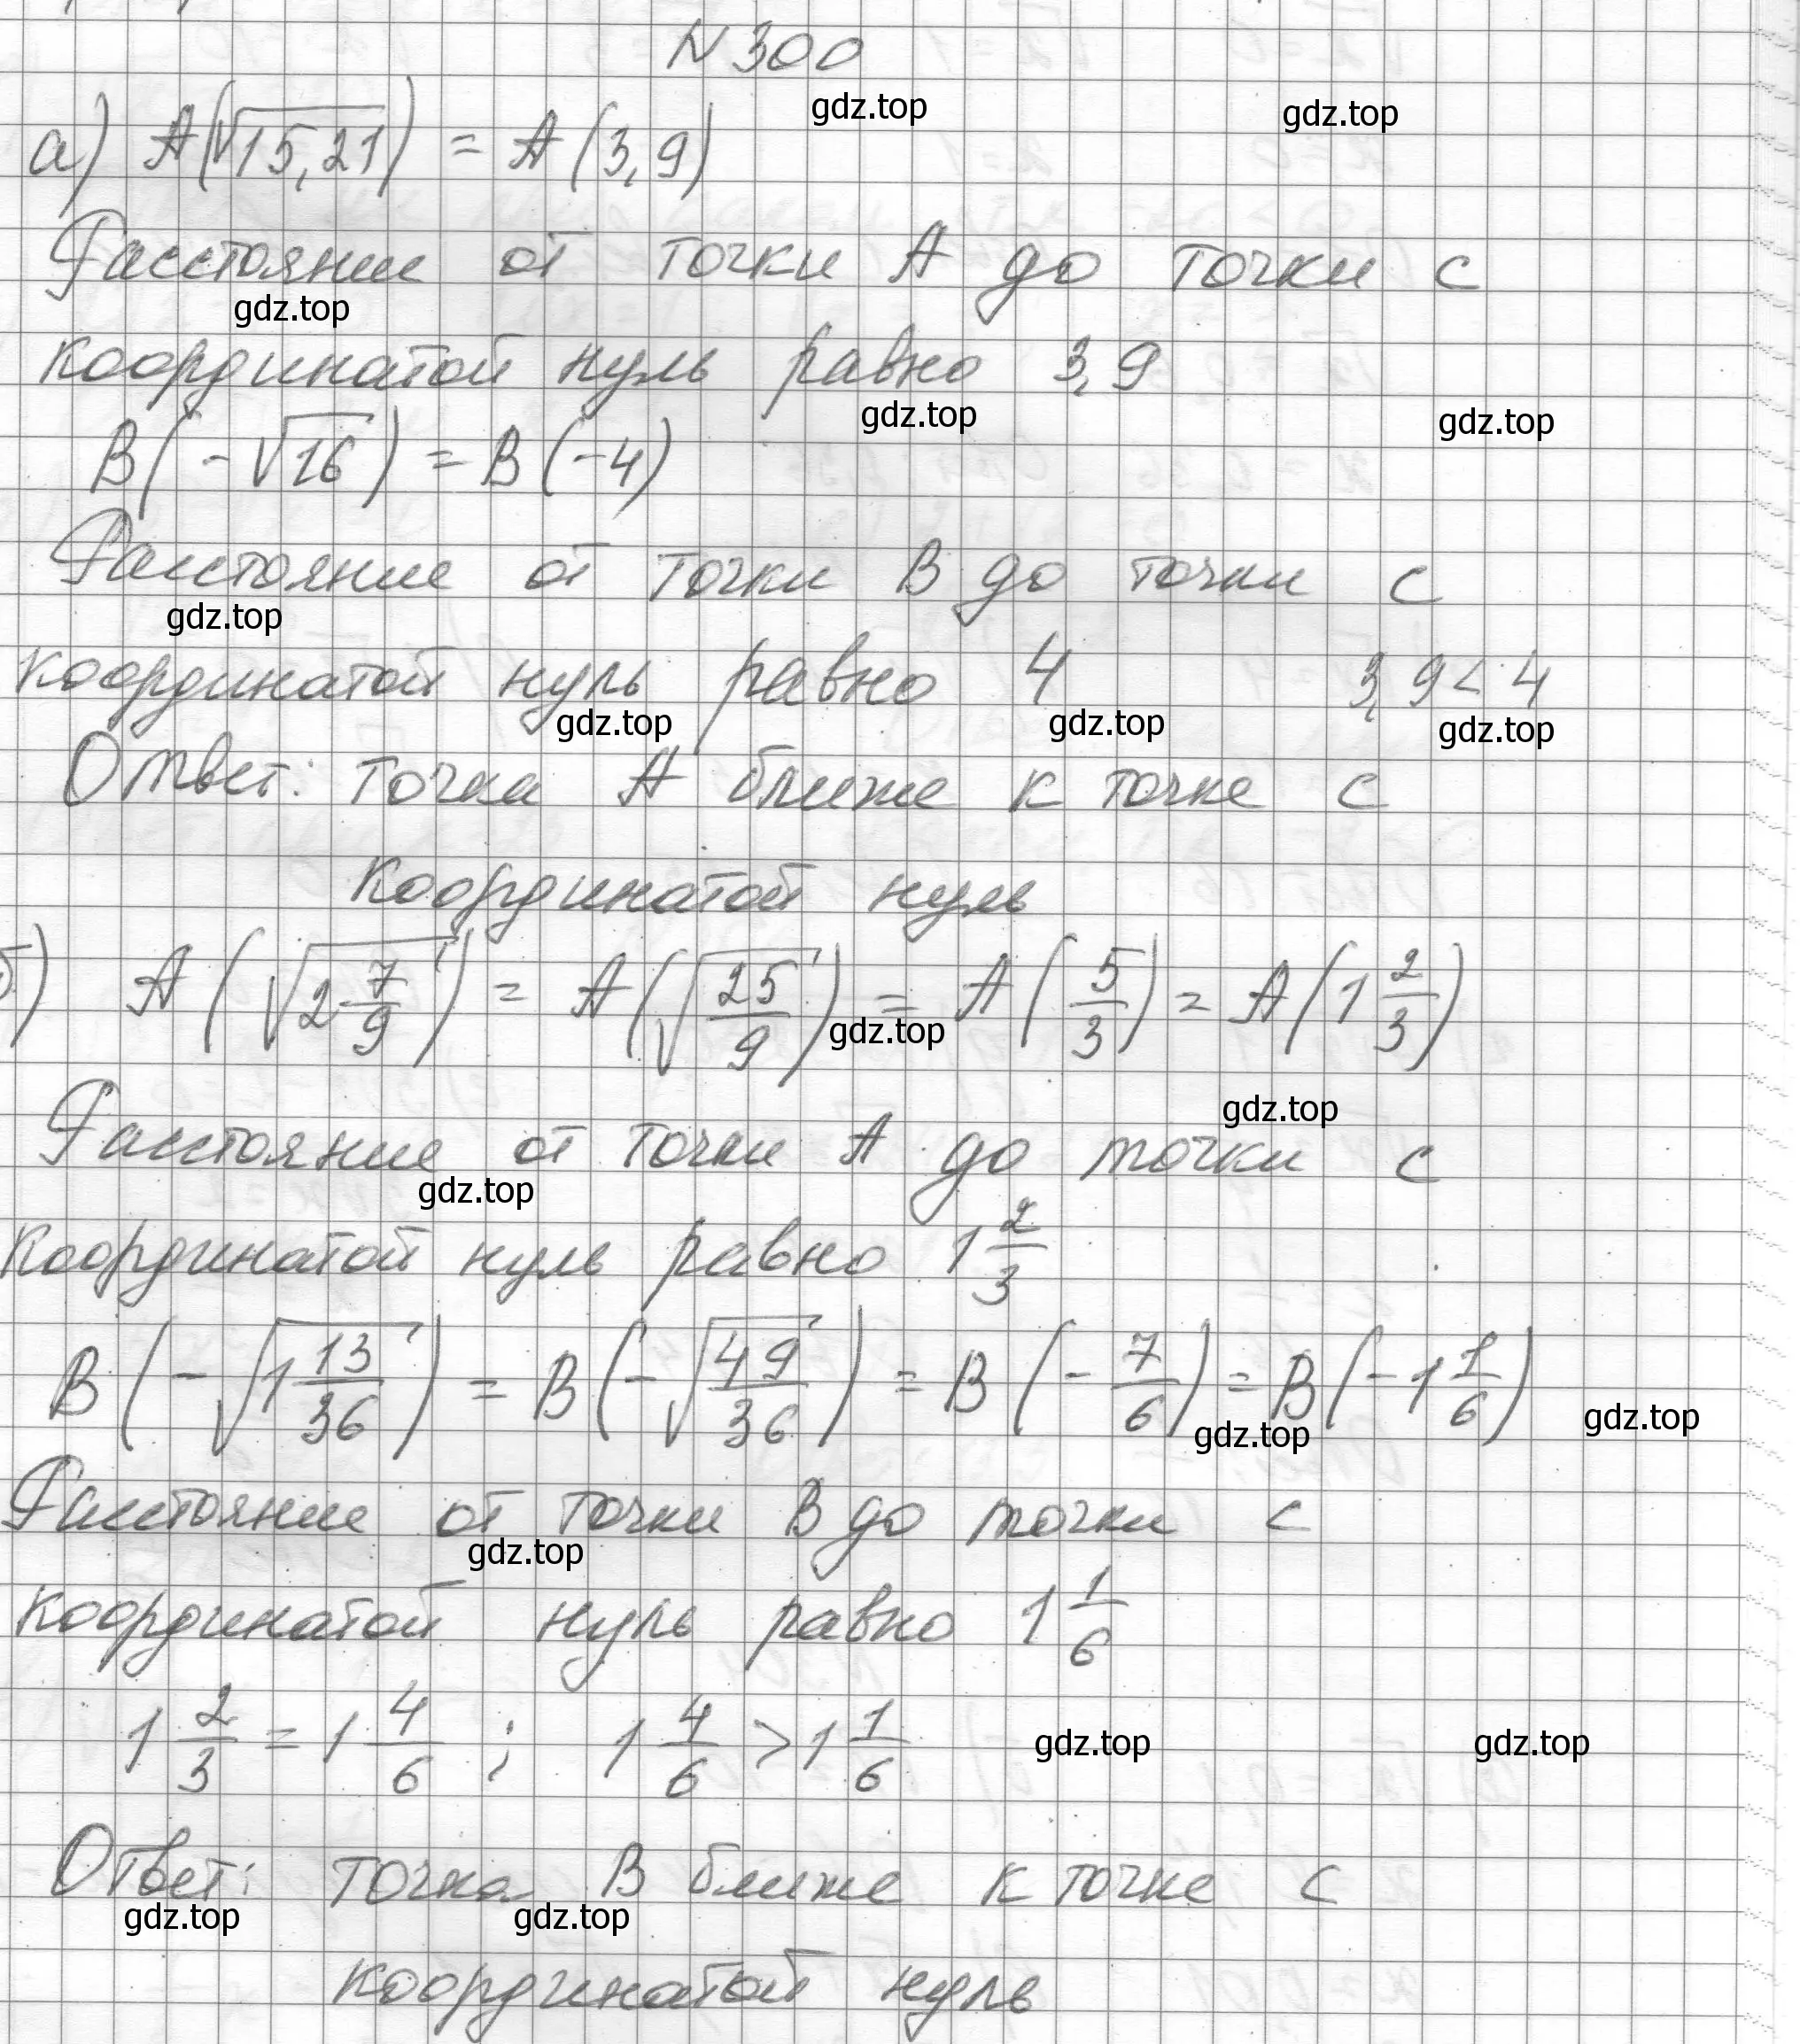 N 300
gdz.top gdz.top
а) A(√15,21) = A(3,9)
Расстояние от точки A до точки с
gdz.top
координатой нуль равно 3,9
gdz.top gdz.top
B(-√16) = B(-4)
Расстояние от точки B до точки с
gdz.top
координатой нуль равно 4 3,9 < 4
gdz.top gdz.top gdz.top
Ответ: точка A ближе к точке с
координатой нуль
б) A(√2 7/9) = A(√25/9) = A(5/3) = A(1 2/3)
gdz.top
gdz.top
Расстояние от точки A до точки с
gdz.top
координатой нуль равно 1 2/3
B(-√1 13/36) = B(-√49/36) = B(-7/6) = B(-1 1/6)
gdz.top gdz.top
Расстояние от точки B до точки с
gdz.top
координатой нуль равно 1 1/6
1 2/3 = 1 4/6 ; 1 4/6 > 1 1/6
gdz.top gdz.top
Ответ: точка B ближе к точке с
gdz.top gdz.top
координатой нуль